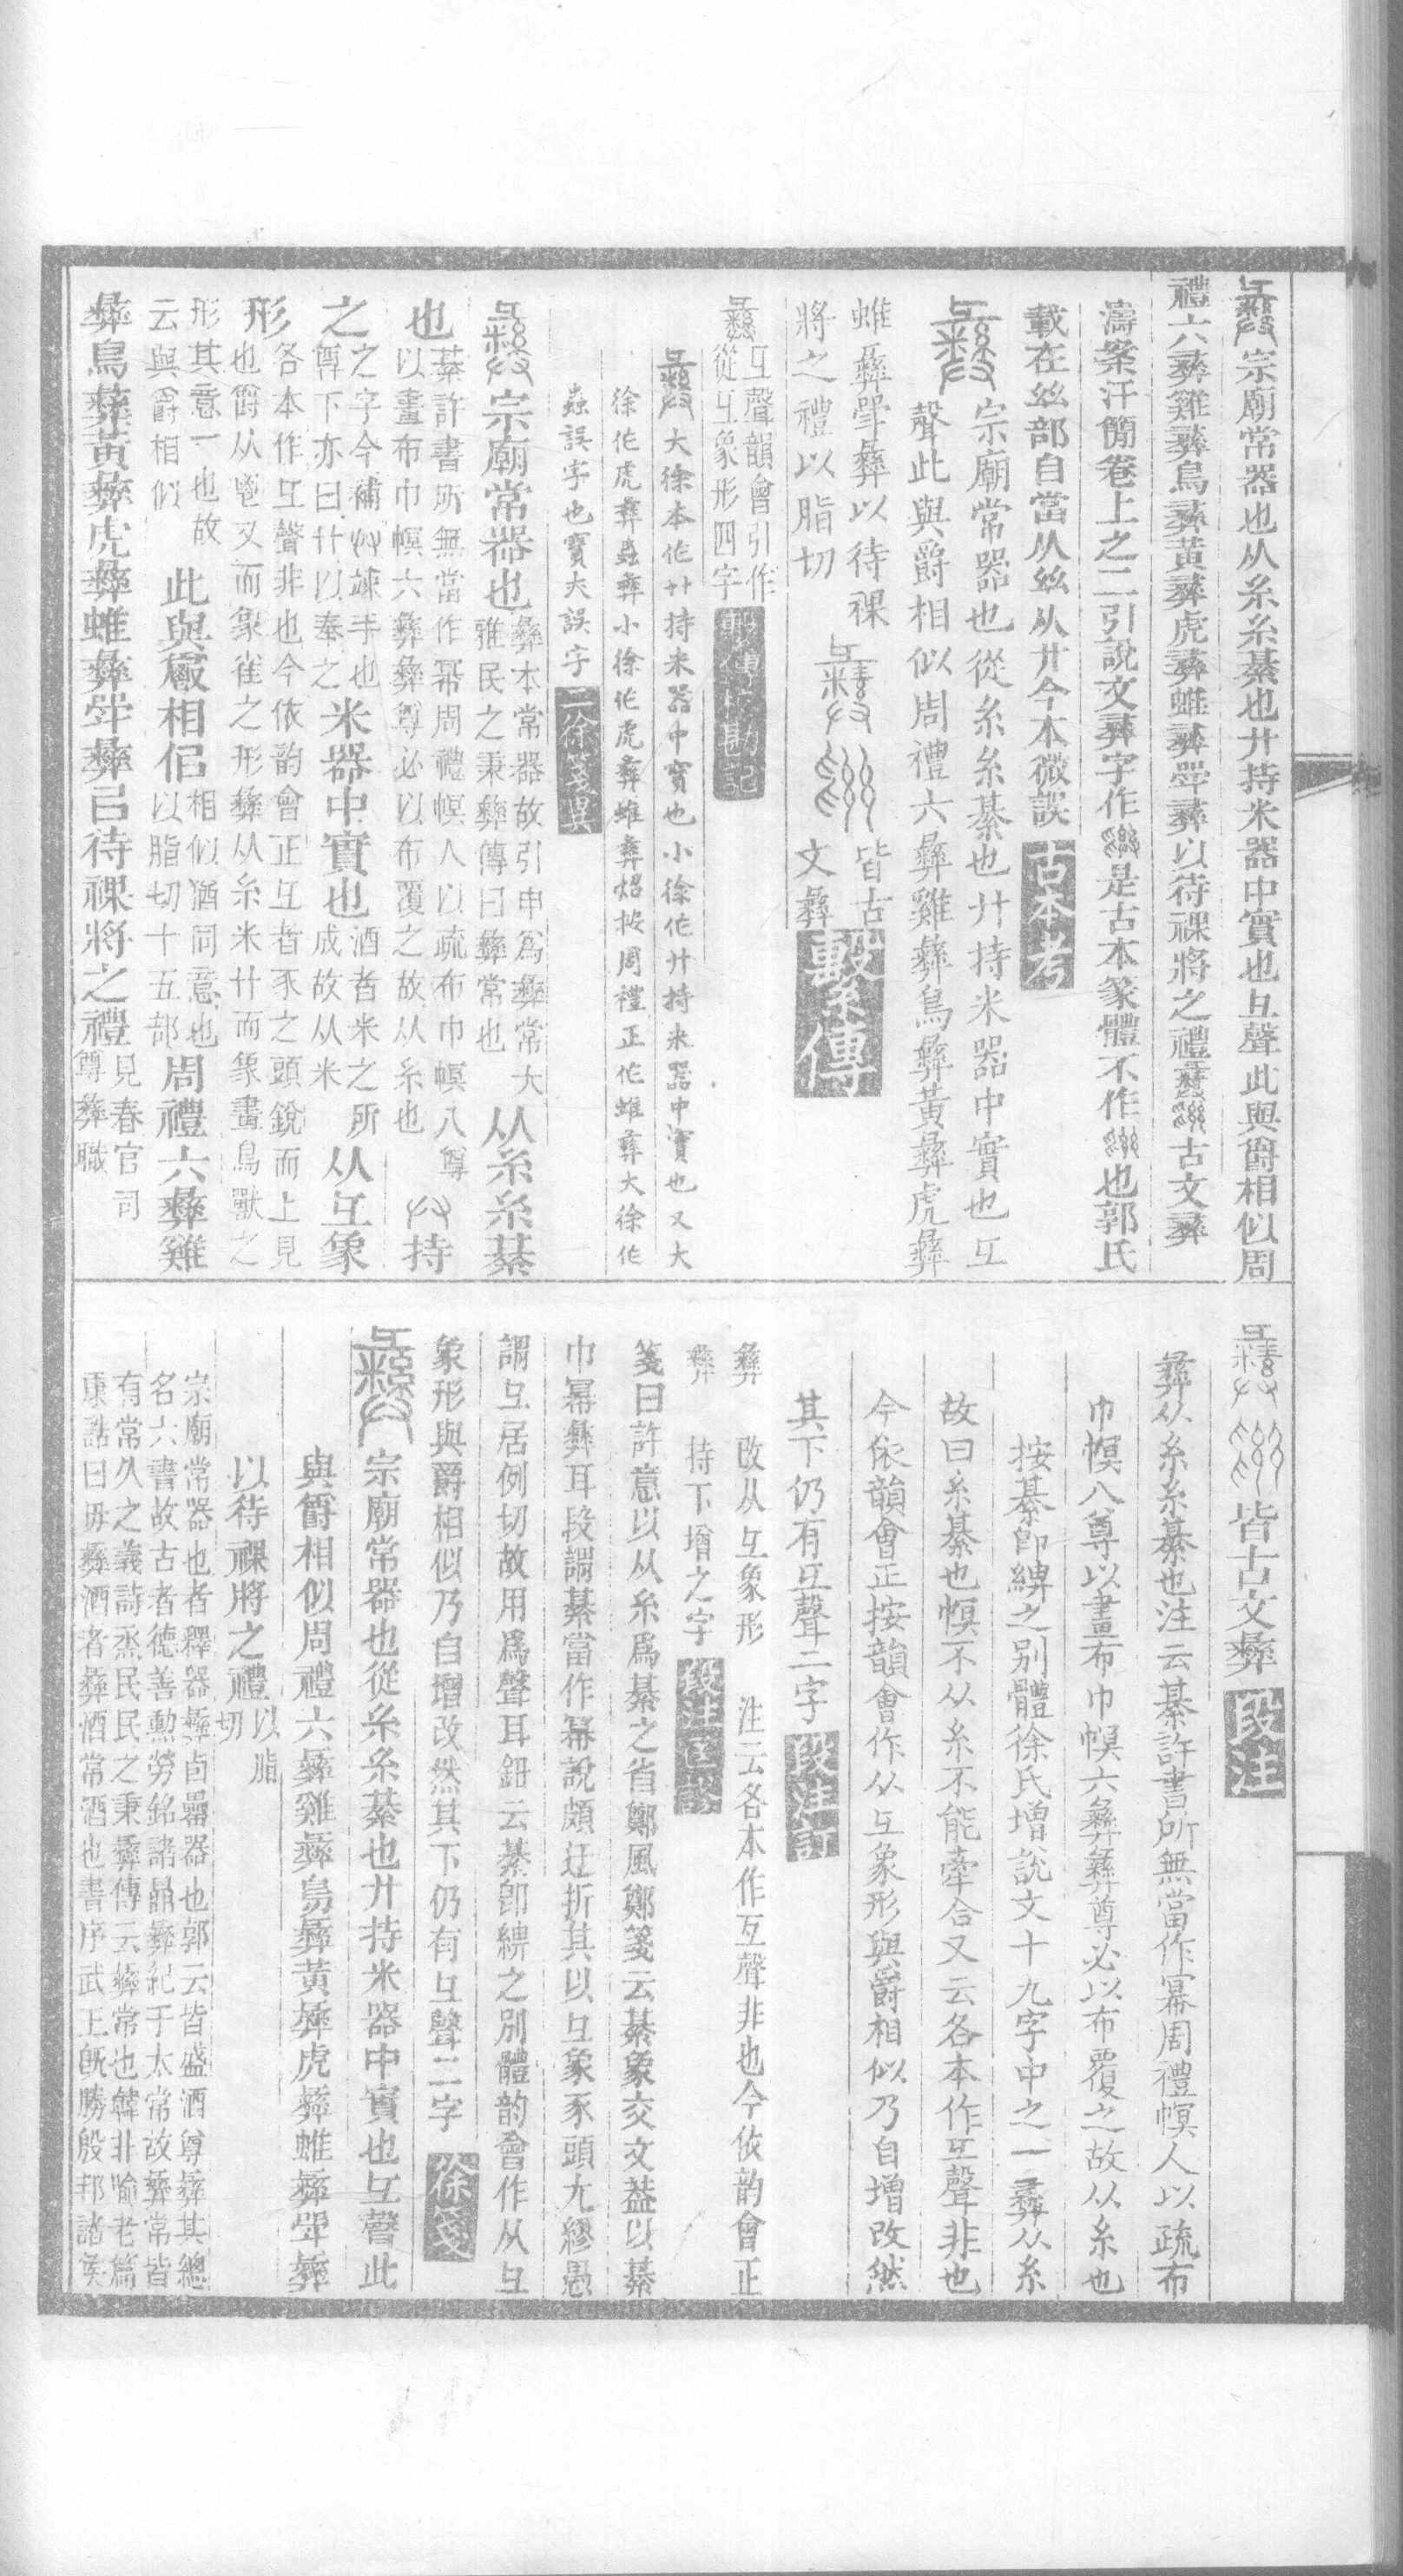 彝宗廟常器也从糸糸綦也廾持米器中實也彑聲此與爵相似周
禮六彝雞彝鳥彝黃彝虎彝蜼彝斝彝以待祼將之禮古文彝
濤案汗簡卷上之二引說文彝字作是古本篆體不作也郭氏
載在絲部自當从絲从廾今本微誤 古本考
宗廟常器也從糸糸綦也廾持米器中實也彑
聲此與爵相似周禮六彝雞彝鳥彝黃彝虎彝
蜼彝斝彝以待祼
將之禮以脂切
皆古
文彝
繫傳
彑聲韻會引作
從彑象形四字
繫傳校勘記
大徐本作廾持米器中寶也小徐作廾持米器中實也又大
徐作虎彝蟲彝小徐作虎彝蜼彝炤按周禮正作蜼彝大徐作
蟲誤字也寶夫誤字 二徐箋異
宗廟常器也
彝本常器故引申爲彝常大
雅民之秉彝傳曰彝常也
从糸糸綦
也
綦許書所無當作幂周禮幎人以疏布巾幎八尊
以畫布巾幎六彝彝尊必以布覆之故从糸也
持
之
之字今補竦手也
尊下亦曰廾以奉之
米器中實也
酒者米之所
成故从米
从彑象
形
各本作彑聲非也今依韵會正彑者豕之頭銳而上見
也爵从鬯又而象雀之形彝从糸米廾而象畫鳥獸之
形其意一也故
云與爵相似
此與爵相佀
相似猶同意也
以脂切十五部
周禮六彝雞
彝鳥彝黃彝虎彝蜼彝斝彝㠯待祼將之禮
見春官司
尊彝職
皆古文彝 段注
彝从糸糸綦也注云綦許書所無當作冪周禮幎人以疏布
巾幎八尊以畫布巾幎六彝彝尊必以布覆之故从糸也
按綦卽綥之別體徐氏增說文十九字中之一彝从糸
故曰糸綦也幎不从糸不能牽合又云各本作彑聲非也
今依韻會正按韻會作从彑象形與爵相似乃自增改然
其下仍有彑聲二字 段注訂
彝 改从彑象形 注云各本作彑聲非也今依韵會正
彝 持下增之字 段注匡謬
箋曰許意以从糸爲綦之省鄭風鄭箋云綦象交文葢以綦
巾冪彝耳段謂綦當作冪說頗迂折其以彑象豕頭尤繆愚
謂彑居例切故用爲聲耳鈕云綦卽綥之別體韵會作从彑
象形與爵相似乃自增改然其下仍有彑聲二字 徐箋
宗廟常器也從糸糸綦也廾持米器中實也彑聲此
與爵相似周禮六彝雞彝鳥彝黃彝虎彝蜼彝斝彝
以待祼將之禮
以脂
切
宗廟常器也者釋器彝卣罍器也郭云皆盛酒尊彝其總
名六書故古者德善勳勞銘諸鼎彝紀于太常故彝常皆
有常久之義詩烝民民之秉彝傳云彝常也韓非喻老篇
康誥曰毋彝酒者彝酒常酒也書序武王旣勝殷邦諸矦